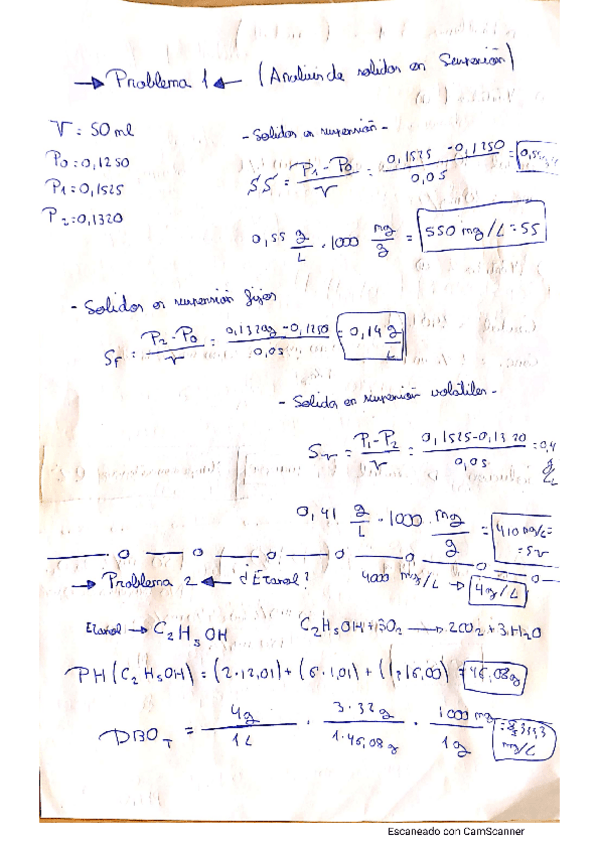 → Problema 1 ← (Analisis de solidos en Suspensión)
V = 50 ml
P0 = 0,1250
P1 = 0,1525
P2 = 0,1320
- Solidos en suspensión -
SS = P1 - P0 / V = 0,1525 - 0,1250 / 0,05 = 0,55
0,55 g/L · 1000 mg/g = 550 mg/L = SS
- Solidos en suspensión fijos
SF = P2 - P0 / V = 0,1320g - 0,1250 / 0,05 = 0,14 g/L
- Solidos en suspensión volátiles -
Sv = P1 - P2 / V = 0,1525 - 0,1320 / 0,05 = 0,4 g/L
0,41 g/L · 1000 mg/g = 410 mg/L = Sv
→ Problema 2 ← ¿Etanol? 4000 mg/L → 4g/L
Etanol → C2H5OH
C2H5OH + 3O2 → 2CO2 + 3H2O
PH (C2H5OH) = (2·12,01) + (6·1,01) + (1·16,00) = 46,08g
DBOT = 4g / 1L · 3·32g / 1·46,08g · 1000 mg / 1g = 8333,3 mg/L
Escaneado con CamScanner